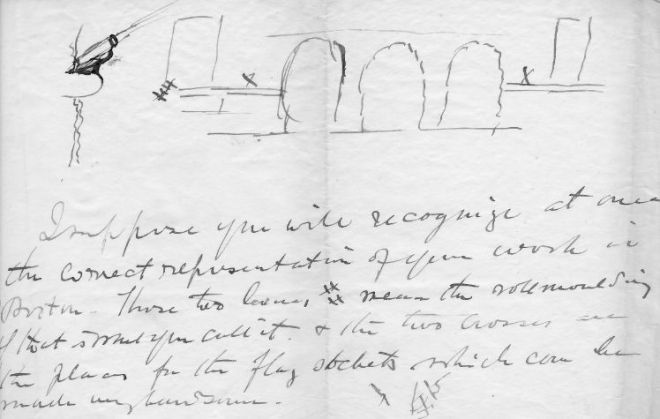 I suppose you will recognize at once
the correct representation of your work in
Boston. Those two lines, # mean the roll moulding
if that is what you call it. & the two crosses are
the places for the flag sockets which can be
made very handsome.